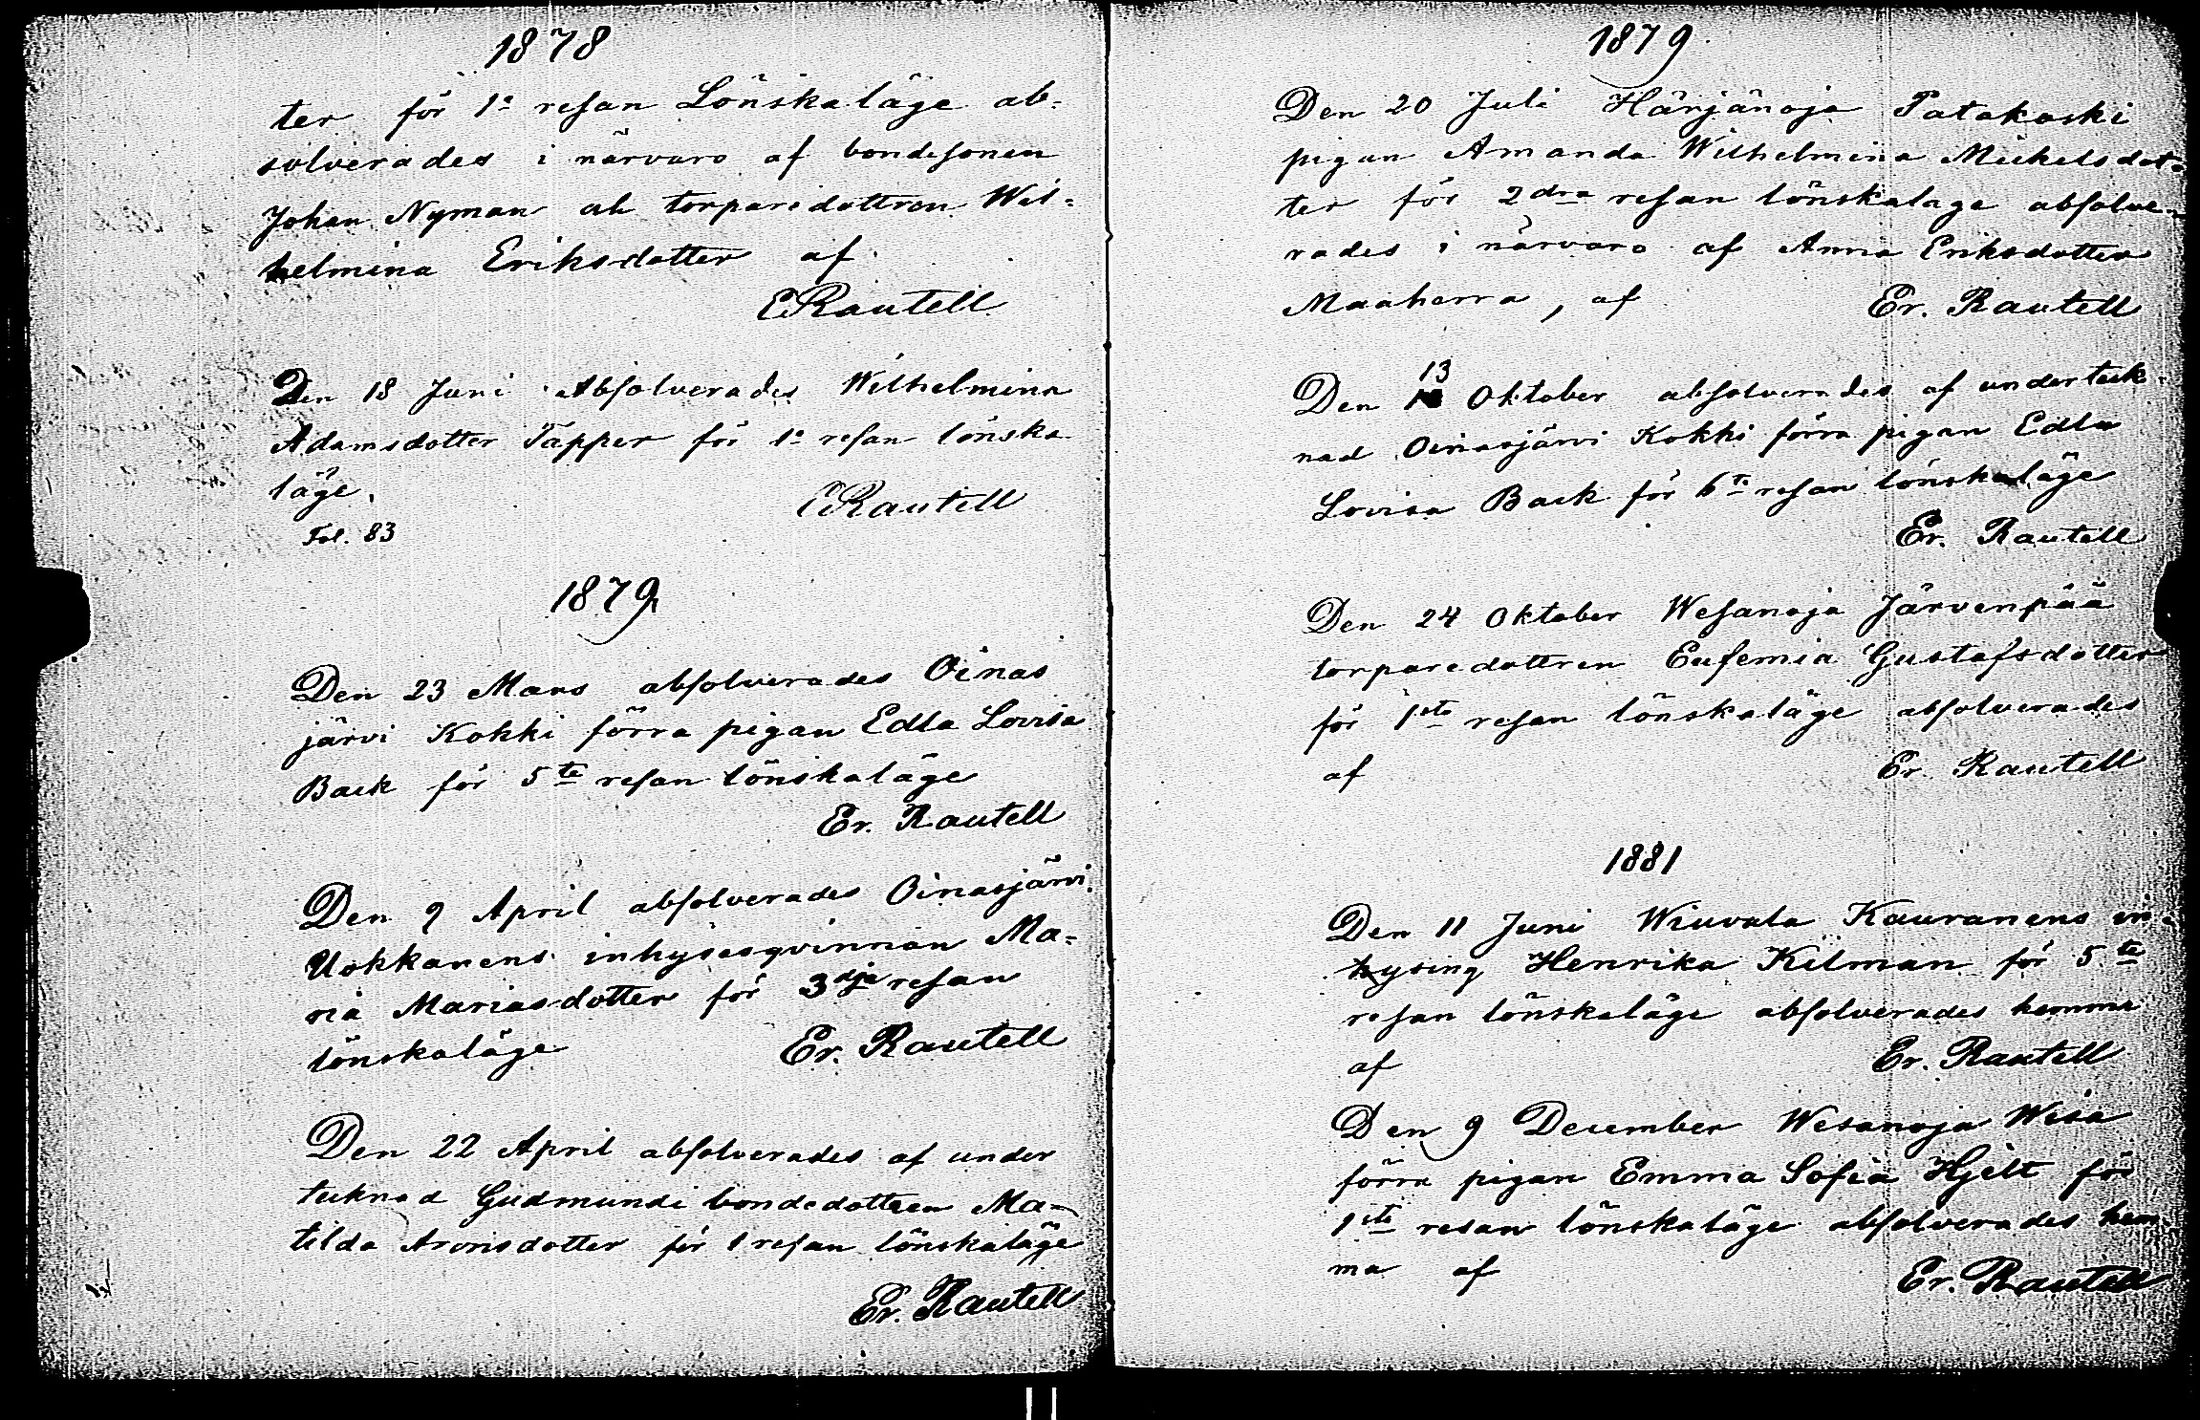 1878
ter för 1a resan Lönskaläge ab-
solverades i närvaro af bondesonen
Johan Nyman ah torparedottren Wil-
helmina Eriksdotter af
ERautell
Den 18 Juni Absolverades Wilhelmina
Adamsdotter Täpper för 1a resan lönska
läge.
ERautell
Fol. 83
1879
Den 23 Mars absolverades Oinas
järvi Kokki förra pigan Edla Lovisa
Back för 5te resan lönskaläge
Er. Rautell
Den 9 April absolverades Oinasjärvi
Uokkanens inhysesqvinnan Ma-
ria Mariasdotter för 3dje resan
lönskaläge Er. Rautell
Den 22 April absolverades af under
tecknad Gudmundi bondedottren Ma-
tilda Aronsdotter för 1 resan lönskaläge
Er. Rautell
1879
Den 20 Juli Härjänoja Patakoski
pigan Amanda Wilhelmina Mickelsdot-
ter för 2dra resan lönskaläge absolve-
rades i närvaro af Anna Eriksdotter
Maaherra, af Er. Rautell
13
Den Oktober absolverades af underteck-
nad Oinasjärvi Kokki förra pigan Edla
Lovisa Back för 6te resan lönskaläge
Er. Rautell
Den 24 Oktober Wesanoja Järvenpää
torparedottren Eufemia Gustafsdotter
för 1sta resan lönskaläge absolverades
af Er. Rautell
1881
Den 11 Juni Wiuvala Kauranens in-
hysing Henrika Kilman för 5te
resan lönskaläge absolverades hemma
af Er. Rautell
Den 9 December Wesanoja Wisa
förra pigan Emma Sofia Hjelt för
1sta resan lönskaläge absolverades hem-
ma af Er. Rautell